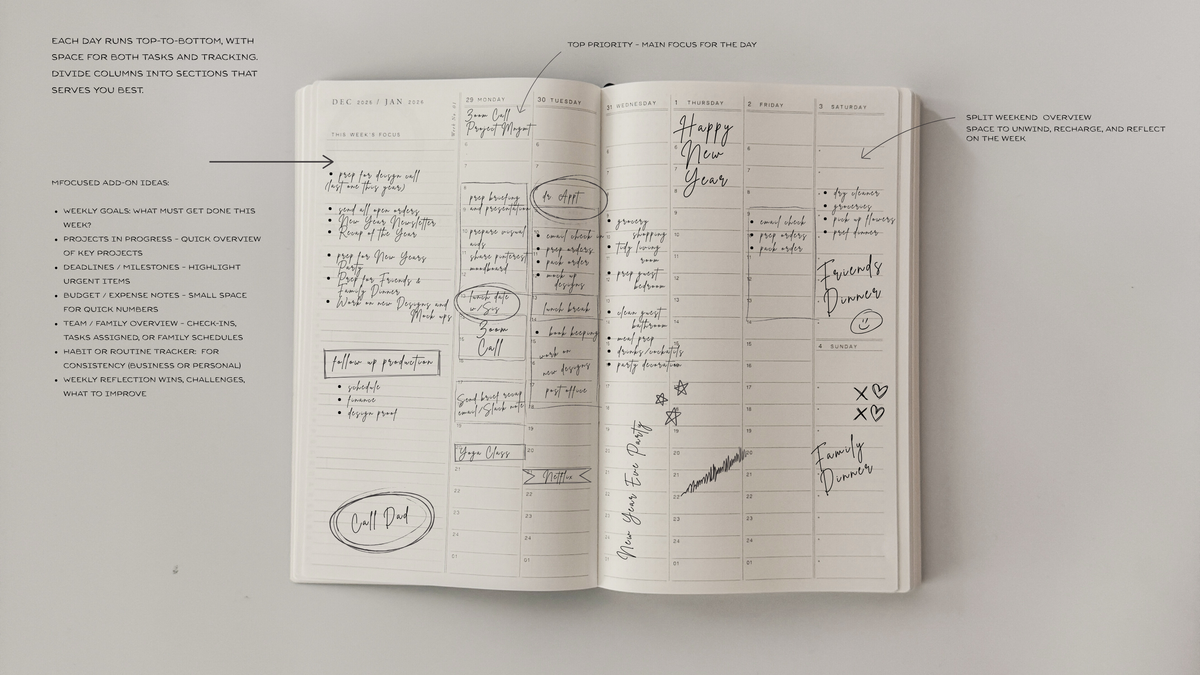 EACH DAY RUNS TOP-TO-BOTTOM, WITH
SPACE FOR BOTH TASKS AND TRACKING.
DIVIDE COLUMNS INTO SECTIONS THAT
SERVES YOU BEST.
MFOCUSED ADD-ON IDEAS:
• WEEKLY GOALS: WHAT MUST GET DONE THIS
WEEK?
• PROJECTS IN PROGRESS – QUICK OVERVIEW
OF KEY PROJECTS
• DEADLINES / MILESTONES – HIGHLIGHT
URGENT ITEMS
• BUDGET / EXPENSE NOTES – SMALL SPACE
FOR QUICK NUMBERS
• TEAM / FAMILY OVERVIEW – CHECK-INS,
TASKS ASSIGNED, OR FAMILY SCHEDULES
• HABIT OR ROUTINE TRACKER: FOR
CONSISTENCY (BUSINESS OR PERSONAL)
• WEEKLY REFLECTION WINS, CHALLENGES,
WHAT TO IMPROVE
TOP PRIORITY – MAIN FOCUS FOR THE DAY
SPLIT WEEKEND OVERVIEW
SPACE TO UNWIND, RECHARGE, AND REFLECT
ON THE WEEK
DEC 2025 / JAN 2026
THIS WEEK'S FOCUS
• prep for design call
(last one this year)
• send all open orders
• New Year Newsletter
• Recap of the Year
• prep for New Years
Party
• Prep for Friends &
Family Dinner
• Work on new Designs and
Mock ups
follow up production
• schedule
• finance
• design proof
Call Dad
29 MONDAY
Zoom Call
Project Mngmt
prep briefing
and presentation
prepare visual
aids
share pinterest
moodboard
lunch date
w/Sis
Zoom
Call
Send brief recap
email/Slack note
Yoga Class
30 TUESDAY
dr Appt
• email check in
• prep orders
• pack order
• mock up
designs
lunch break
• book keeping
work on
new designs
post office
Netflix
31 WEDNESDAY
• grocery
shopping
• tidy living
room
• prep guest
bedroom
• clean guest
bathroom
• meal prep
• drinks/cocktails
• party decoration
New Year Eve Party
1 THURSDAY
Happy
New
Year
2 FRIDAY
• email check
• prep orders
• pack order
3 SATURDAY
• dry cleaner
• groceries
• pick up flowers
• pref dinner
Friends
Dinner
4 SUNDAY
Family
Dinner